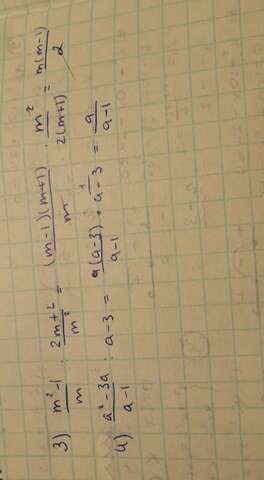 3) (m²-1)/m : (2m+2)/m² = ((m-1)(m+1))/m · m²/(2(m+1)) = (m(m-1))/2
4) (a²-3a)/(a-1) : a-3 = (a(a-3))/(a-1) · 1/(a-3) = a/(a-1)